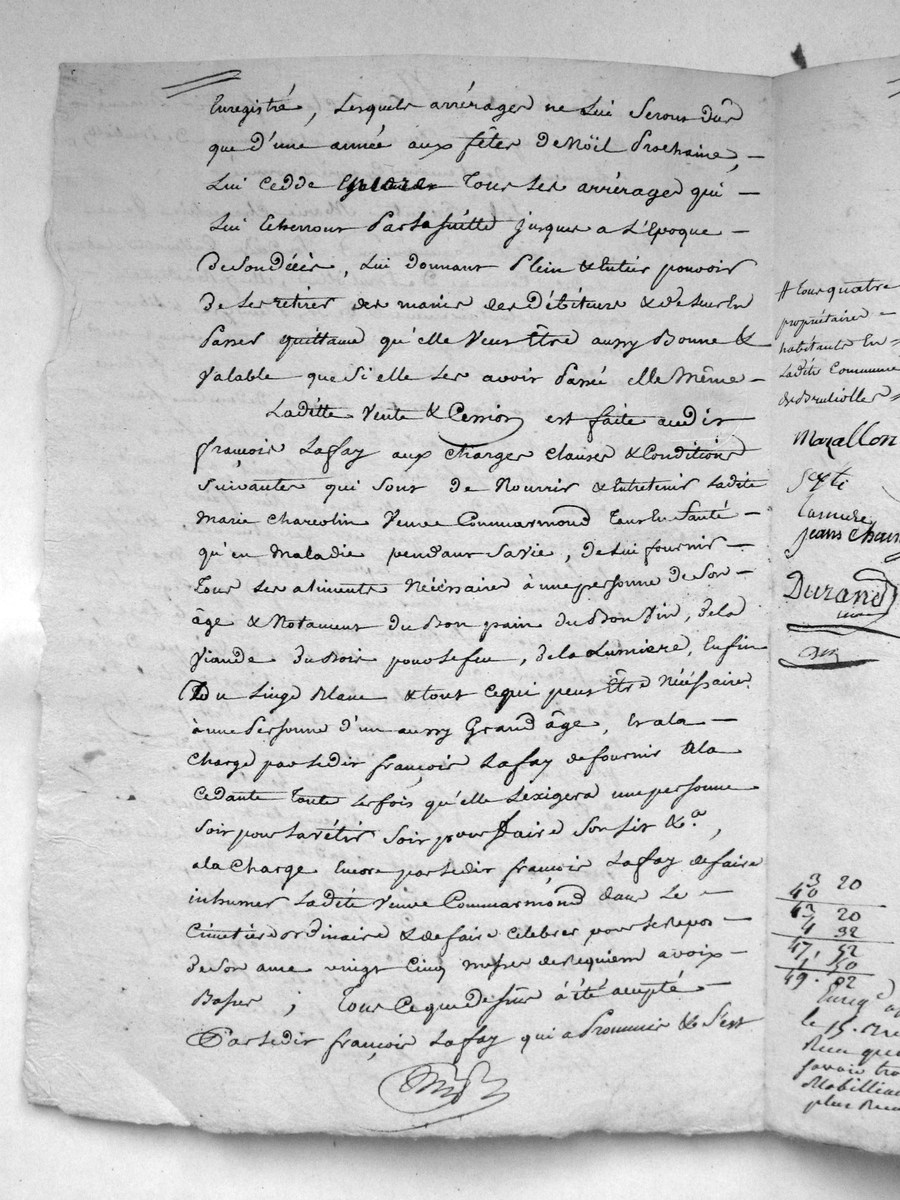 Enregistré, Lesquels arrérages ne Lui Seront dûs
que d'une année aux fêtes de Noël Prochaine, –
Lui Cedde tous les arrérages qui –
Lui Echerront Par la suitte jusques a L'Epoque –
De son décès, Lui donnant Plein & Entier pouvoir
de les retirer des mains des débiteurs & de leur En
Passer quittance qu'elle veut être aussy Bonne &
Valable que Si elle les avoit Passé elle même –
Laditte Vente & Cession est faite audit
françois Laffay aux charges clauses & Conditions
suivantes qui sont de Nourrir & Entretenir Ladite
Marie Charetin Veuve Commarmond tant En Santé –
qu'en maladie pendant Sa vie, de Lui fournir –
tous les aliments Nécessaire à une personne de Son –
âge & Notament du Bon pain du Bon Vin, de la
Viande du Bois pour Le feu, de la Lumiere, Enfin
Du Linge Blanc & tout ce qui peut être Nécéssaire
à une Personne d'un aussy Grand âge, Et a la –
charge par Ledit françois Laffay de fournir à la
Cedante toute Les fois qu'elle L'exigera une personne
soit pour La vêtir Soit pour faire Son Lit &a,
a la Charge Encore par Ledit françois Laffay de faire
inhumer Ladite Veuve Commarmond dans Le –
Cimetiere ordinaire & de faire Celebrer pour Le repos –
de Son ame vingt Cinq messes de Requiem a voix –
Basse ; tout Ce que de sur à été accepté –
Par Ledit françois Laffay qui a Prommis & S'est
# tous quatre
propriétaires –
habitants En
Ladite Commune
de Brullioles =
Mazallon
jean Cha
Durand
3 20
40
43 20
4 32
47, 52
1 50
49. 02
Enreg
le 15.
Reçu qua
savoir tro
Mobillia
plus Reçu